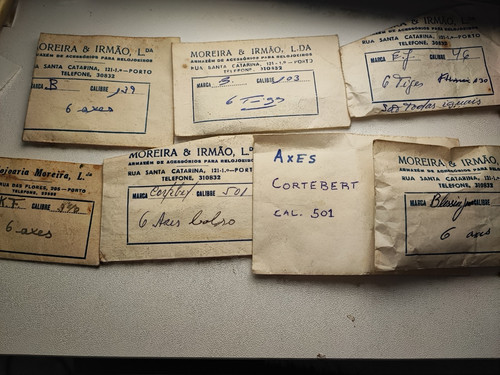 MOREIRA & IRMÃO, L.DA
ARMAZÉM DE ACESSÓRIOS PARA RELOJOEIROS
RUA SANTA CATARINA, 121-1.º—PORTO
TELEFONE, 30832
MARCA B CALIBRE 139
6 axes
MOREIRA & IRMÃO, L.DA
ARMAZÉM DE ACESSÓRIOS PARA RELOJOEIROS
RUA SANTA CATARINA, 121-1.º—PORTO
TELEFONE, 30832
MARCA B CALIBRE 103
6 Tiges
MOREIRA & IRMÃO, L.
ARMAZÉM DE ACESSÓRIOS PARA RELOJOEIROS
RUA SANTA CATARINA, 121-1.º—PORTO
TELEFONE, 30832
MARCA CALIBRE
6 Tiges
São todas iguais
ojoaria Moreira, L.da
RUA DAS FLORES,
TELEFONE,
K.F. CALIBRE
6 axes
MOREIRA & IRMÃO, L.D
ARMAZÉM DE ACESSÓRIOS PARA RELOJOEIROS
RUA SANTA CATARINA, 121-1.º—PORTO
TELEFONE, 30832
MARCA Cortebert CALIBRE 501
6 Axes bolso
AXES
CORTEBERT
CAL. 501
MOREIRA & IRMÃO, L.
ARMAZÉM DE ACESSÓRIOS PARA RELOJOEIROS
RUA SANTA CATARINA, 121-1.º
TELEFONE, 30832
MARCA
6 axes